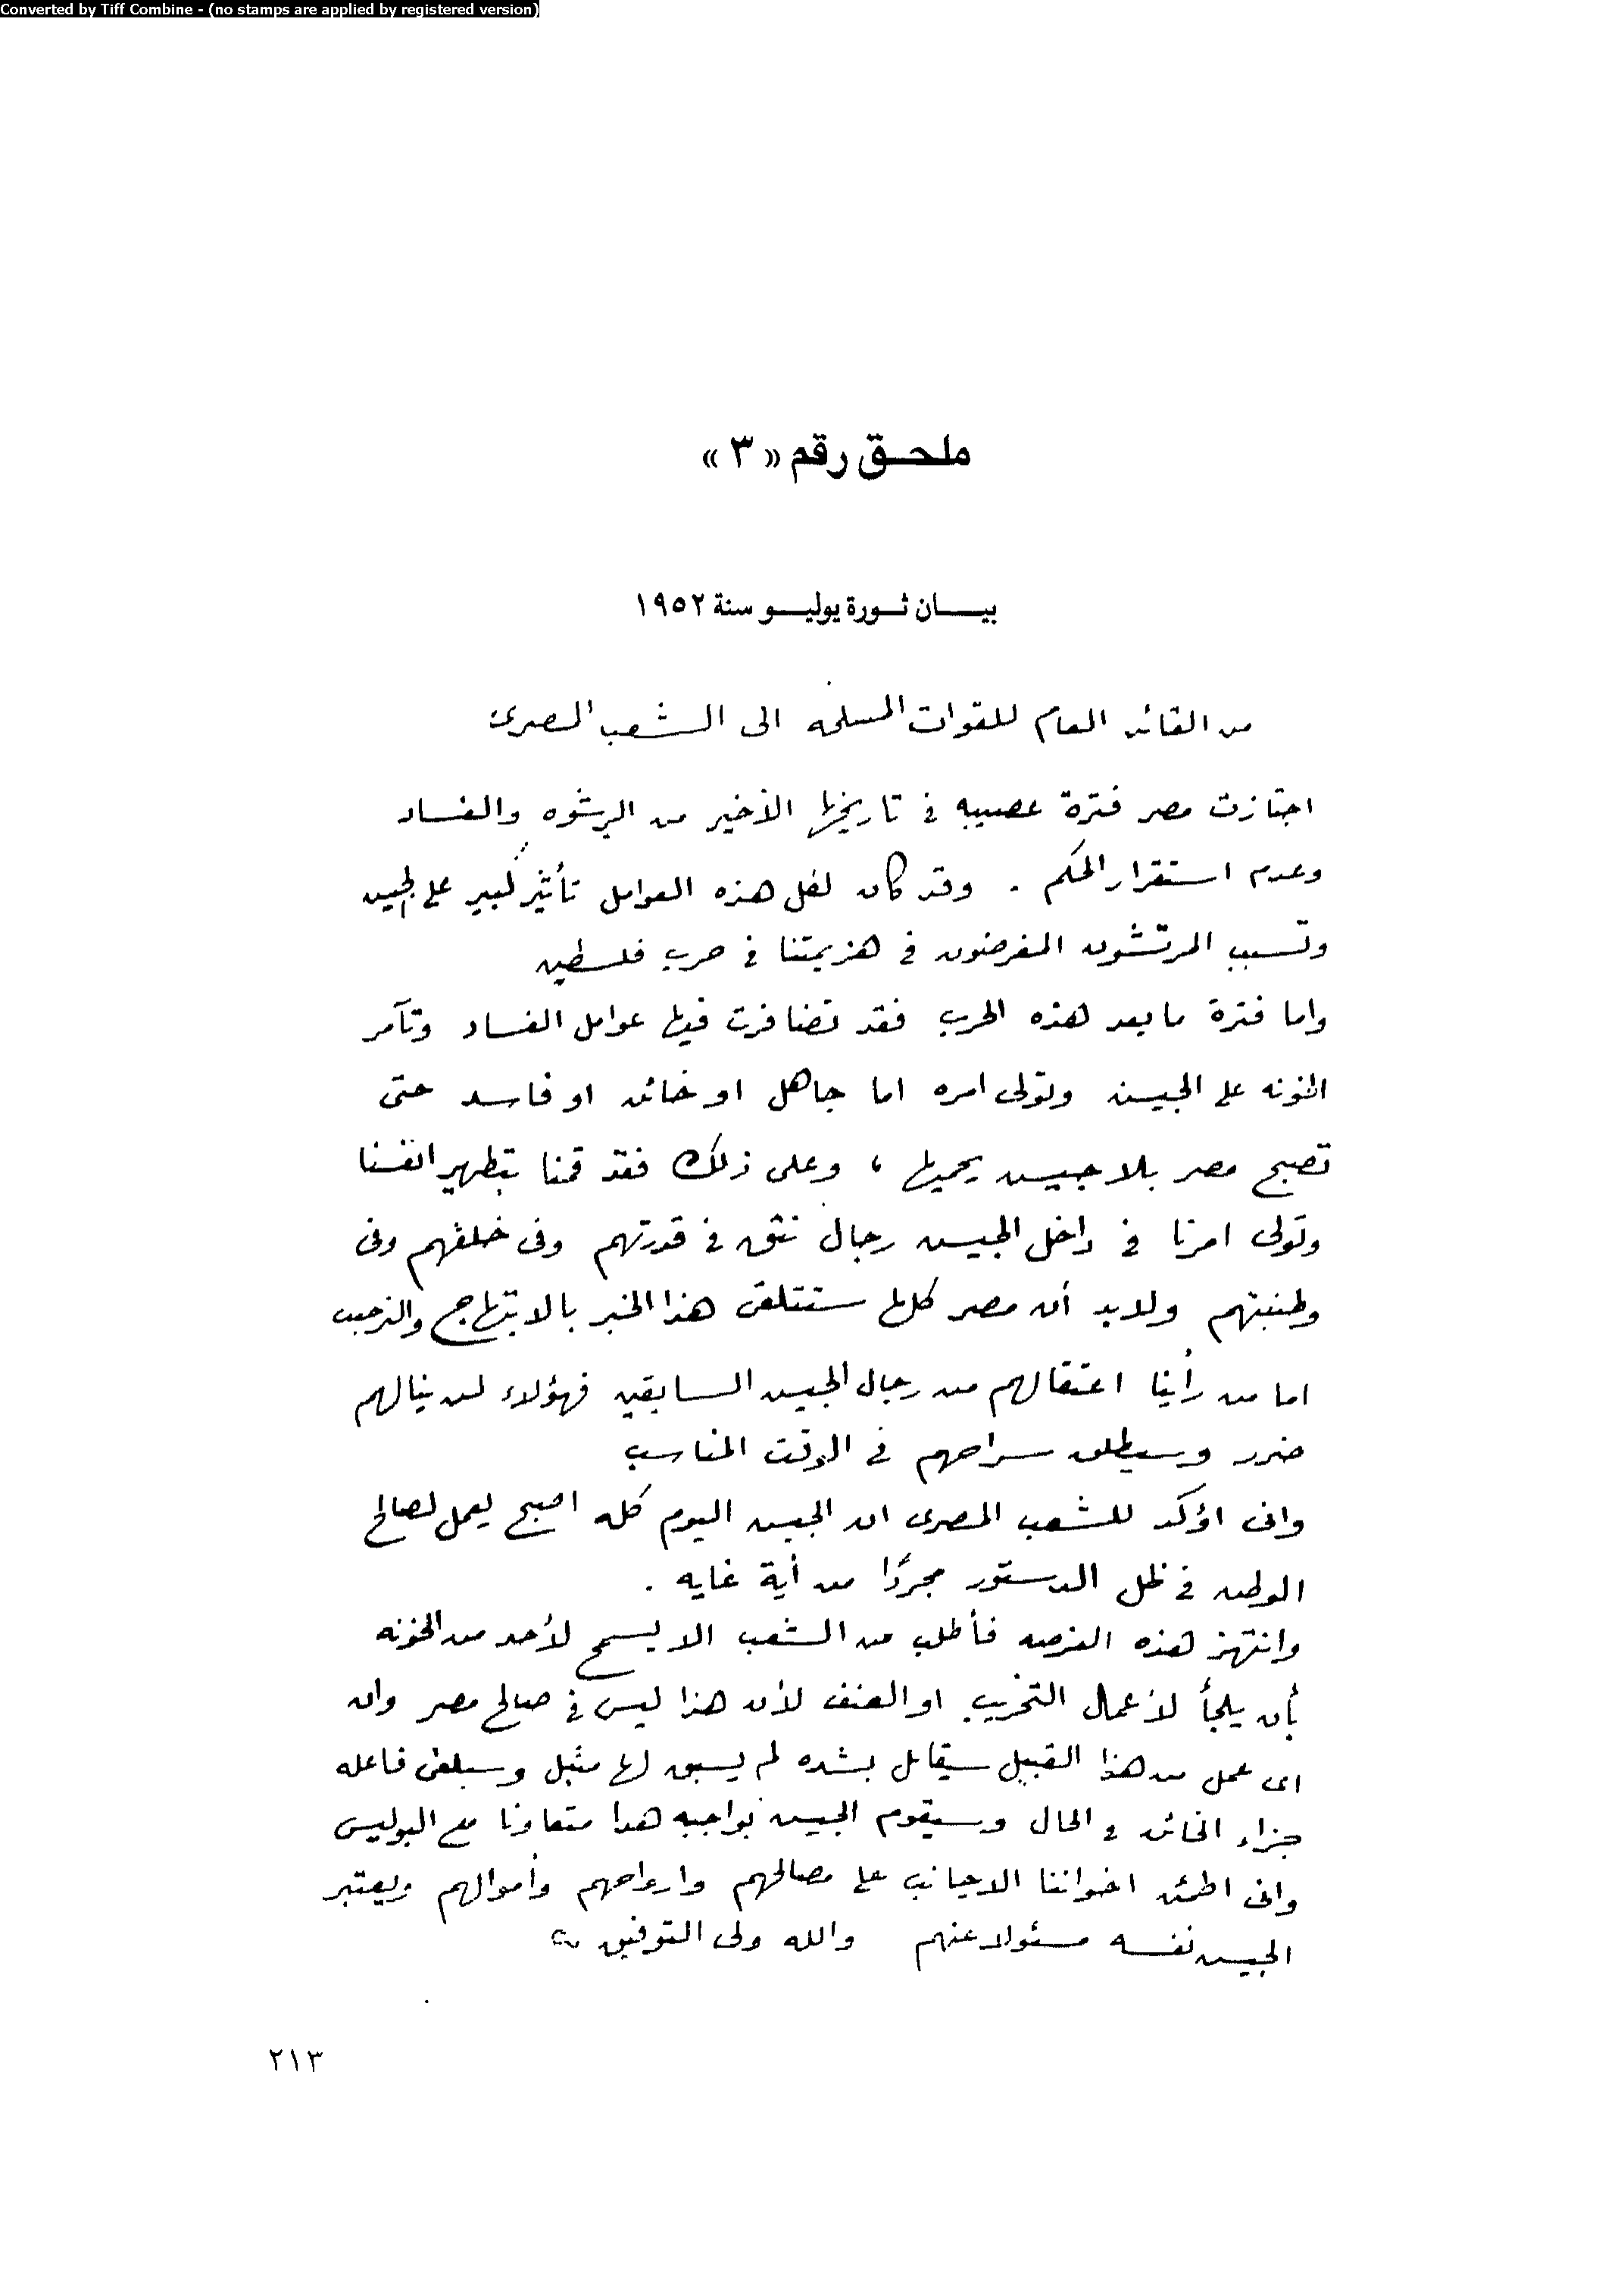 Converted by Tiff Combine - (no stamps are applied by registered version)
ملحق رقم «٣»
بيان ثورة يوليو سنة ١٩٥٢
من القائد العام للقوات المسلحه الى الشعب المصرى
اجتازت مصر فترة عصيبه فى تاريخها الأخير من الرشوه والفساد
وعدم استقرار الحكم . وقد كان لكل هذه العوامل تأثير كبير على الجيش
وتسبب المرتشون المغرضون فى هزيمتنا فى حرب فلسطين
واما فترة ما بعد هذه الحرب فقد تضافرت فيها عوامل الفساد وتآمر
الخونه على الجيش وتولى امره اما جاهل او خائن او فاسد حتى
تصبح مصر بلا جيش يحميها ، وعلى ذلك فقد قمنا بتطهير انفسنا
وتولى امرنا فى داخل الجيش رجال نثق فى قدرتهم وفى خلقهم وفى
وطنيتهم ولابد أن مصر كلها ستتلقى هذا الخبر بالابتهاج والترحيب
اما من رأينا اعتقالهم من رجال الجيش السابقين فهؤلاء لن ينالهم
ضرر وسيطلق سراحهم فى الوقت المناسب
وانى اؤكد للشعب المصرى ان الجيش اليوم كله اصبح يعمل لصالح
الوطن فى ظل الدستور مجردًا من أية غايه .
وانتهز هذه الفرصه فأطلب من الشعب الا يسمح لأحد من الخونه
بأن يلجأ لأعمال التخريب او العنف لأن هذا ليس فى صالح مصر وان
اى عمل من هذا القبيل سيقابل بشده لم يسبق لها مثيل وسيلقى فاعله
جزاء الخائن فى الحال وسيقوم الجيش بواجبه هذا متعاونا مع البوليس
وانى اطمئن اخواننا الاجانب على مصالحهم وارواحهم وأموالهم ويعتبر
الجيش نفسه مسئولا عنهم والله ولى التوفيق
٢١٣